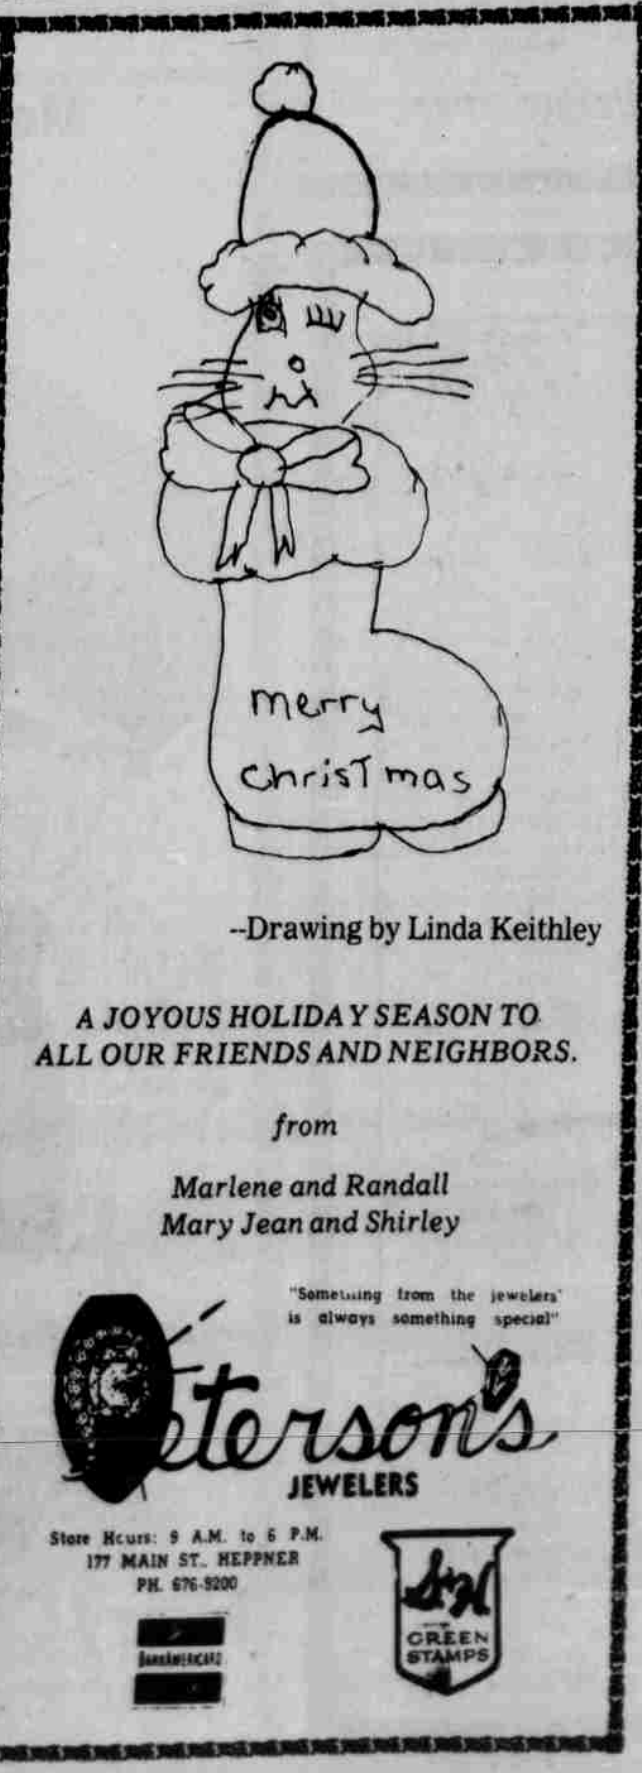 merry
christmas
--Drawing by Linda Keithley
A JOYOUS HOLIDAY SEASON TO
ALL OUR FRIENDS AND NEIGHBORS.
from
Marlene and Randall
Mary Jean and Shirley
"Something from the jewelers'
is always something special"
Peterson's
JEWELERS
Store Hours: 9 A.M. to 6 P.M.
177 MAIN ST., HEPPNER
PH. 676-9200
BANKAMERICARD
S&H
GREEN
STAMPS